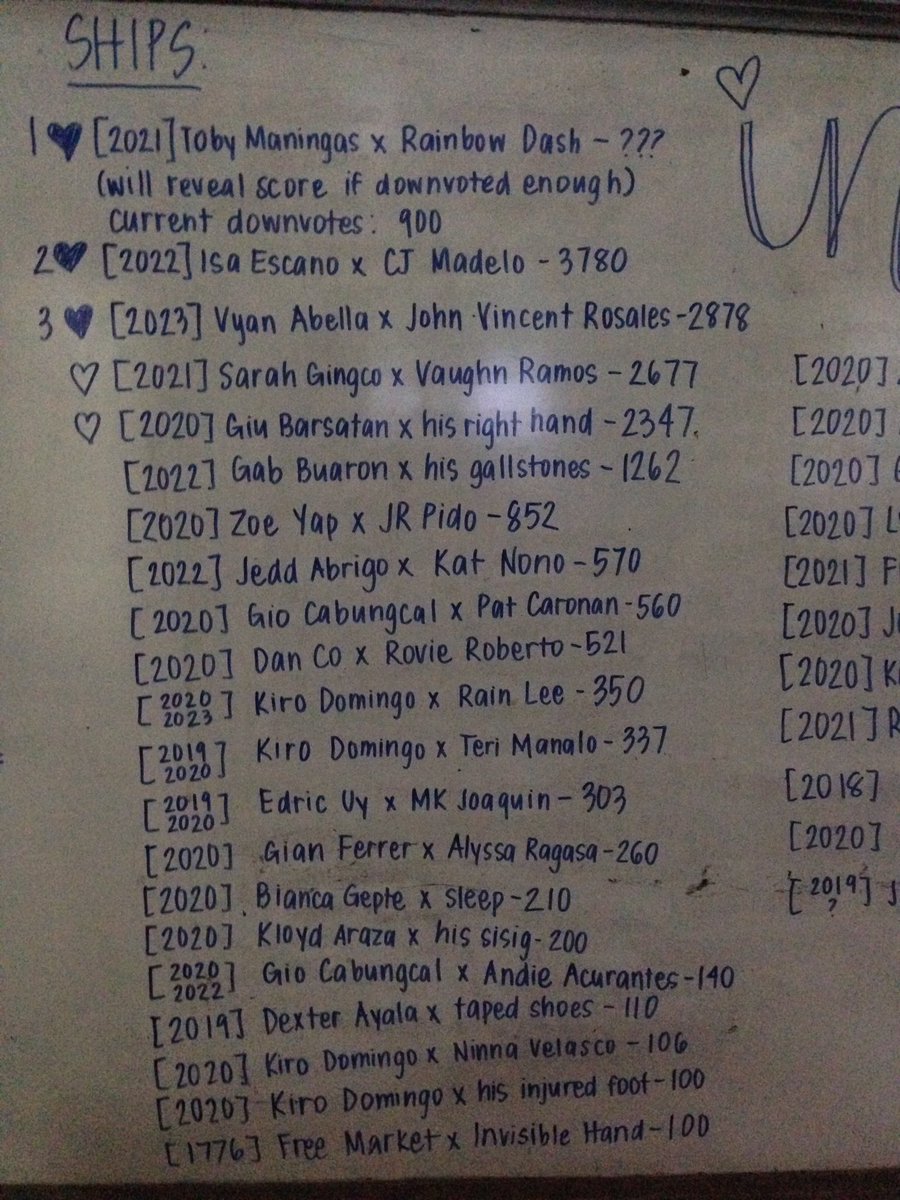 SHIPS:
1 ♥ [2021] Toby Maningas x Rainbow Dash - ???
(will reveal score if downvoted enough)
current downvotes: 900
2 ♥ [2022] Isa Escano x CJ Madelo - 3780
3 ♥ [2023] Vyan Abella x John Vincent Rosales - 2878
♡ [2021] Sarah Gingco x Vaughn Ramos - 2677
♡ [2020] Giu Barsatan x his right hand - 2347
[2022] Gab Buaron x his gallstones - 1262
[2020] Zoe Yap x JR Pido - 852
[2022] Jedd Abrigo x Kat Nono - 570
[2020] Gio Cabungcal x Pat Caronan - 560
[2020] Dan Co x Rovie Roberto - 521
[2020 2023] Kiro Domingo x Rain Lee - 350
[2019 2020] Kiro Domingo x Teri Manalo - 337
[2019 2020] Edric Uy x MK Joaquin - 303
[2020] Gian Ferrer x Alyssa Ragasa - 260
[2020] Bianca Gepte x sleep - 210
[2020] Kloyd Araza x his sisig - 200
[2020 2022] Gio Cabungcal x Andie Acurantes - 140
[2019] Dexter Ayala x taped shoes - 110
[2020] Kiro Domingo x Ninna Velasco - 106
[2020] Kiro Domingo x his injured foot - 100
[1776] Free Market x Invisible Hand - 100
[2020]
[2020]
[2020]
[2020]
[2021]
[2020]
[2020]
[2021]
[2018]
[2020]
[2019 ?]